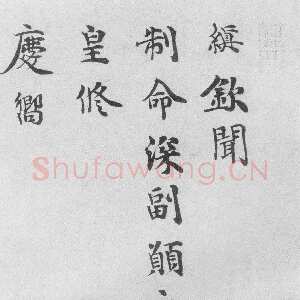 縝欽聞
制命深副顒、
皇修
慶嚮
Shufawang.CN